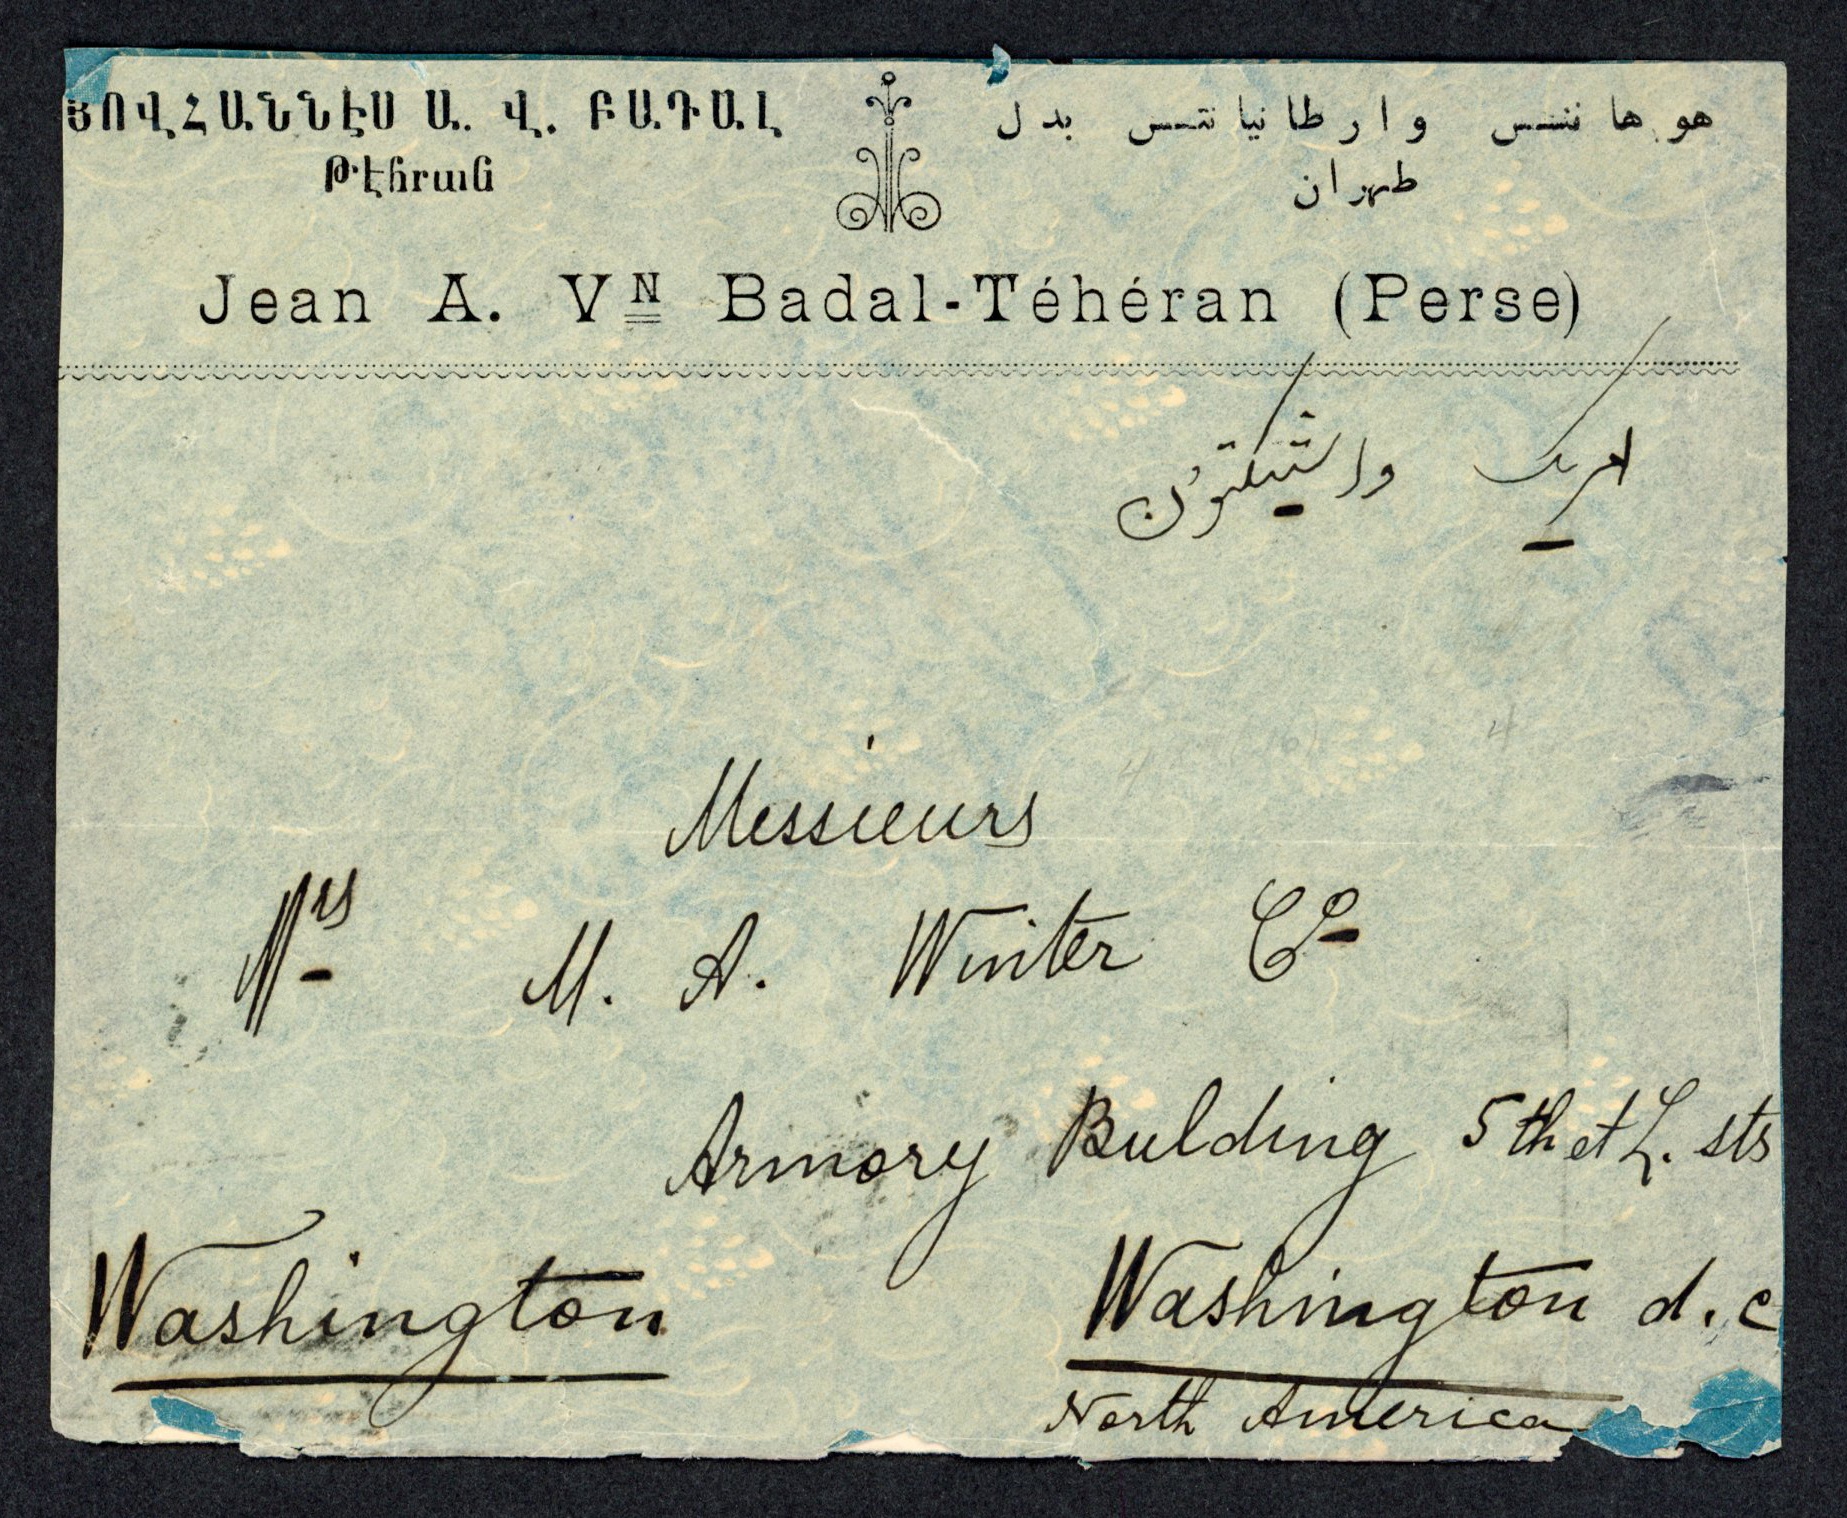 ՅՈՎՀԱՆՆԷՍ Ա. Վ. ԲԱԴԱԼ
Թէհրան
هوهاننس وارطانیانتس بدل
طهران
Jean A. Vᴺ Badal-Téhéran (Perse)
امریک واشیکتون
Messieurs
Mrs M. A. Winter Co
Armory Bulding 5th et L. sts
Washington
Washington d. c
North America